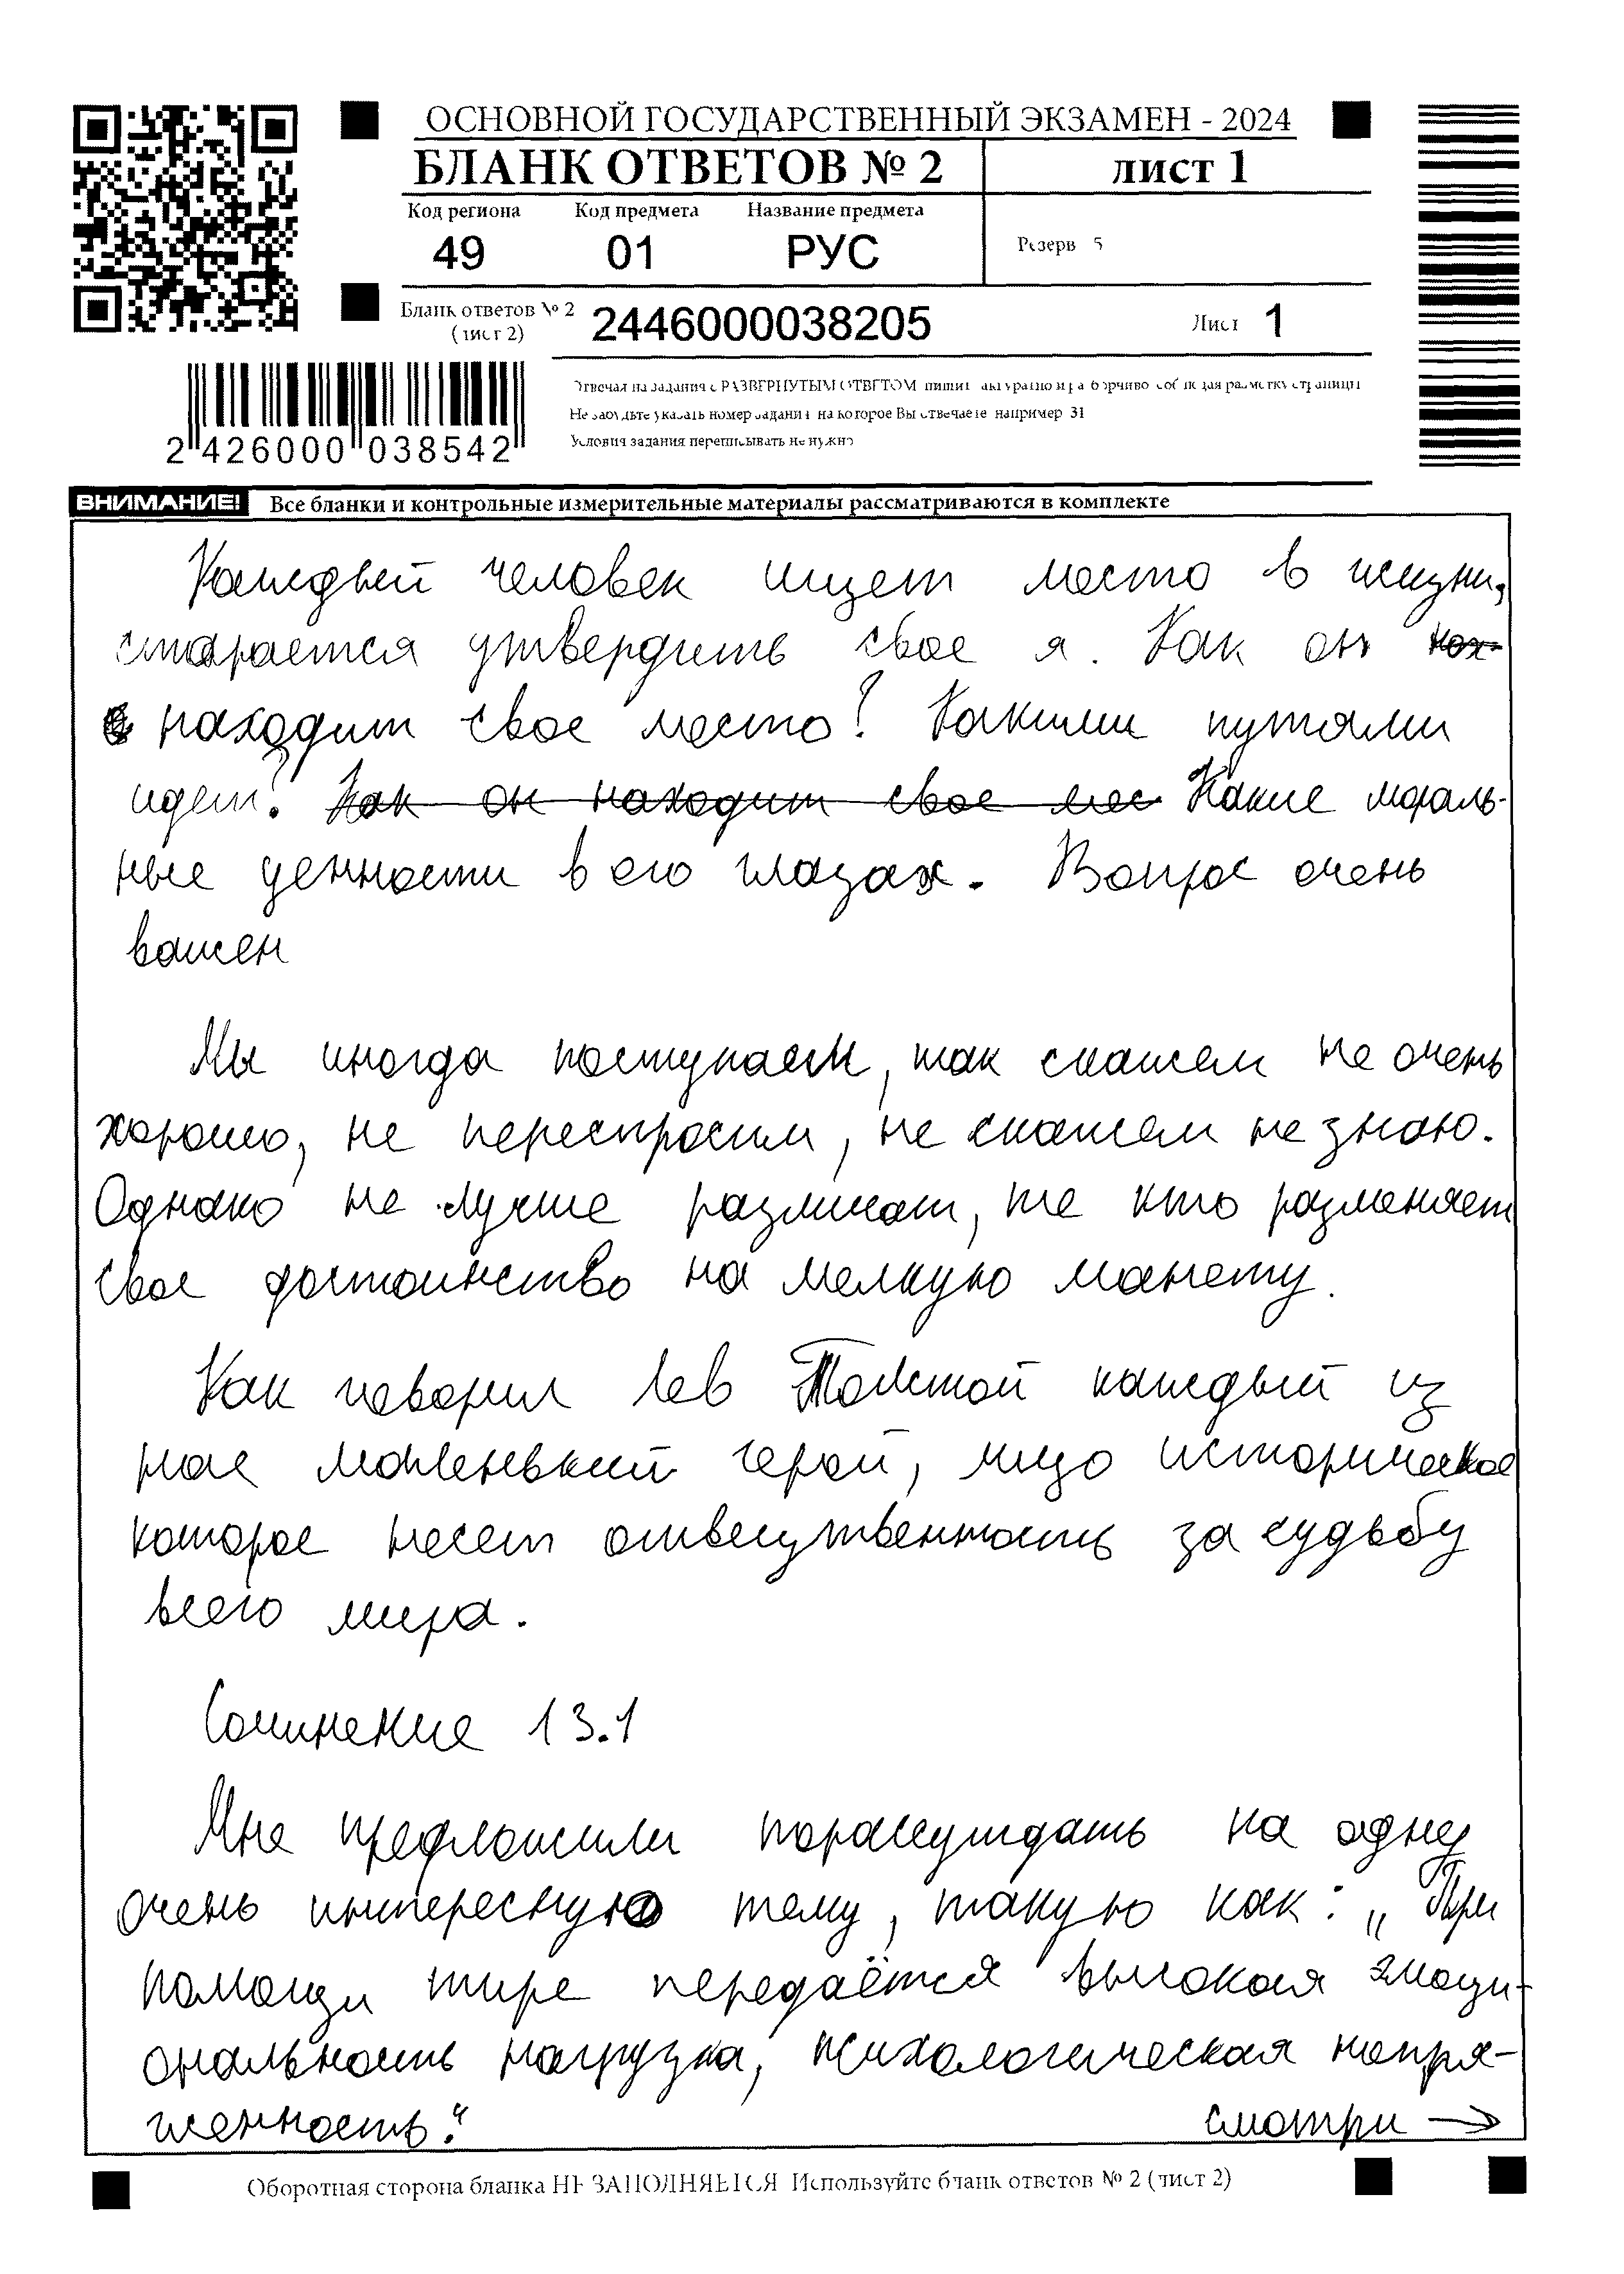 ОСНОВНОЙ ГОСУДАРСТВЕННЫЙ ЭКЗАМЕН - 2024
БЛАНК ОТВЕТОВ № 2
ЛИСТ 1
Код региона Код предмета Название предмета
49 01 РУС
Резерв 5
Бланк ответов № 2
(лист 2)
2446000038205
Лист 1
Отвечая на задания с РАЗВЕРНУТЫМ ОТВЕТОМ пишите аккуратно и разборчиво соблюдая разметку страницы
Не забудьте указать номер задания на которое Вы отвечаете например 31
Условия задания переписывать не нужно
2 426000 038542
ВНИМАНИЕ! Все бланки и контрольные измерительные материалы рассматриваются в комплекте
Каждый человек ищет место в жизни,
старается утвердить свое я. Как он нах-
находит свое место? Какими путями
идет? Как он находит свое мес Какие мораль-
ные ценности в его глазах. Вопрос очень
важен
Мы иногда поступаем, так скажем не очень
хорошо, не переспросим, не скажем не знаю.
Однако не лучше размишот, те кто разменяет
свое достоинство на мелкую манету.
Как говорил Лев Толстой каждый из
нас маленький герой, лицо историческое
которое несет отвесутвенность за судьбу
всего мира.
Сочинение 13.1
Мне предложили порассуждать на одну
очень интересную тему, такую как: „При
помощи тире передаётся высокая эмоци-
ональность нагрузка, психологическая напря-
женность“.
смотри →
Оборотная сторона бланка НЕ ЗАПОЛНЯЕТСЯ Используйте бланк ответов № 2 (лист 2)